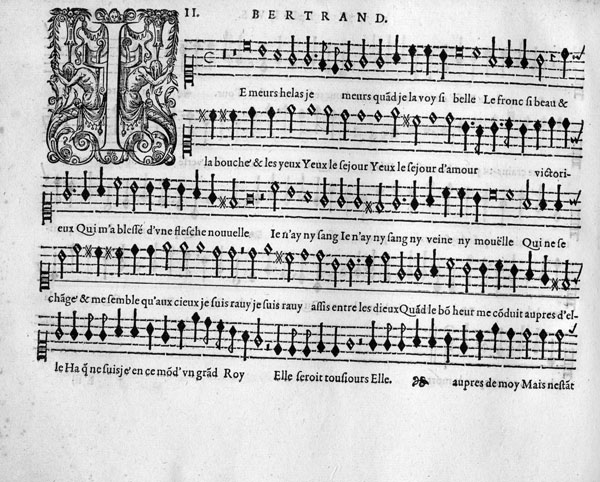 II. BERTRAND.
IE meurs helas je meurs quãd je la voy si belle Le fronc si beau &
la bouche' & les yeux Yeux le sejour Yeux le sejour d'amour victori-
eux Qui m'a blessé d'vne flesche nouuelle Ie n'ay ny sang Ie n'ay ny sang ny veine ny mouëlle Qui ne se
chãge' & me semble qu'aux cieux je suis rauy je suis rauy assis entre les dieux Quãd le bõ heur me cõduit aupres d'el-
le Ha q̃ ne suis je' en ce mõd' vn grãd Roy Elle seroit tousiours Elle. aupres de moy Mais nestãt